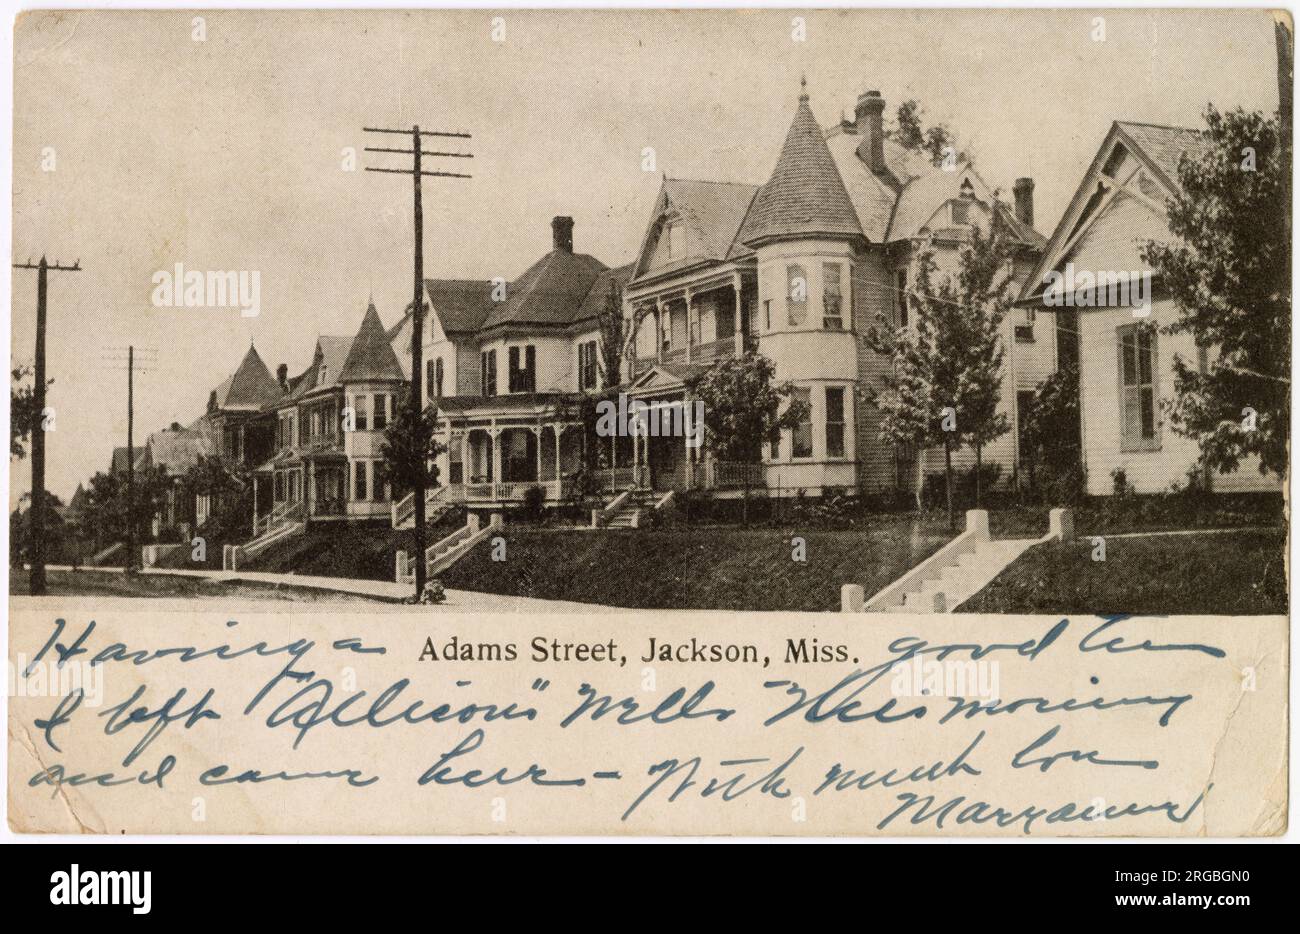 Having a Adams Street, Jackson, Miss. good time
I left "Allison's" Wells this morning
and came here - With much love
alamy
Image ID: 2RGBGN0
www.alamy.com